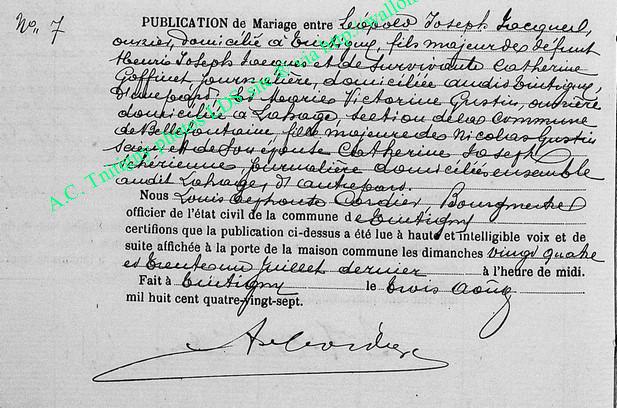 N° 7
PUBLICATION de Mariage entre Léopold Joseph Jacques,
ouvrier, domicilié à Tintigny, fils majeur des défunt
Henri Joseph Jacques et de survivante Catherine
Goffinet journalière, domiciliée audit Tintigny,
D'une part; Et Marie Victorine Gustin, ouvrière
domiciliée à Lahage, section de la commune
de Bellefontaine, fille majeure des Nicolas Gustin
et de son épouse Catherine Joseph
journalière domiciliés ensemble
audit Lahage, d'autre part.
Nous Louis Alphonse Cordier, Bourgmestre
officier de l'état civil de la commune de Tintigny
certifions que la publication ci-dessus a été lue à haute et intelligible voix et de
suite affichée à la porte de la maison commune les dimanches vingt quatre
et trente un juillet dernier à l'heure de midi.
Fait à Tintigny le trois août
mil huit cent quatre-vingt-sept.
A Cordier
A.C. Tintigny photos LDS site & via http://wallon